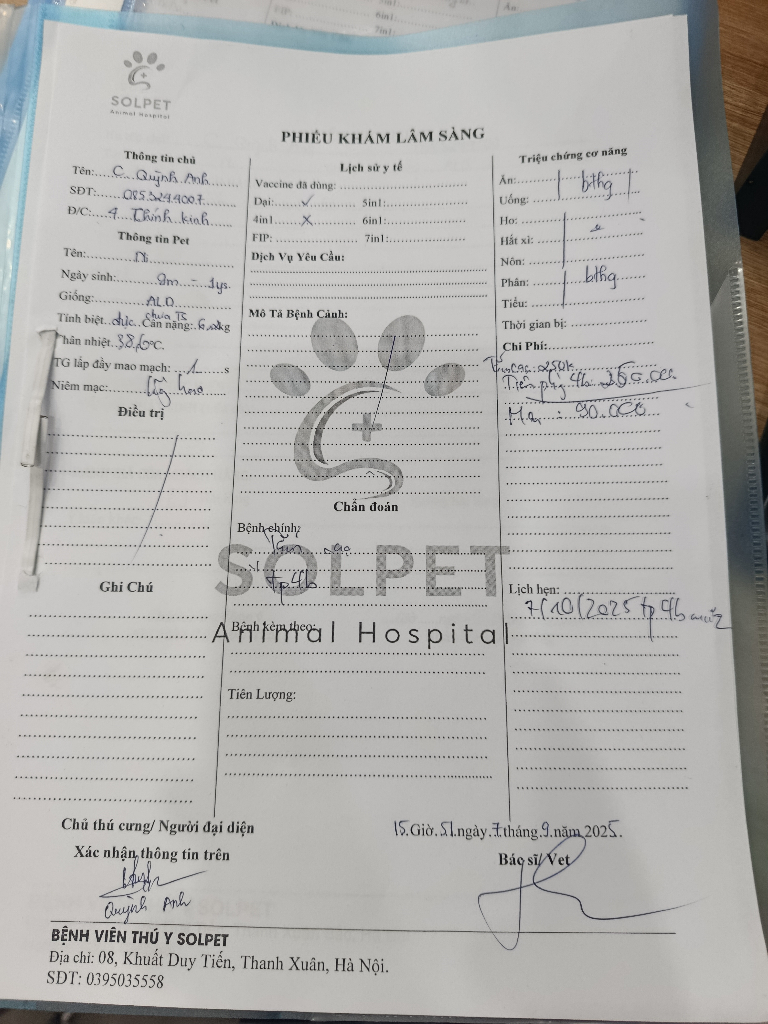 SOLPET
Animal Hospital
PHIẾU KHÁM LÂM SÀNG
Thông tin chủ
Tên: C. Quỳnh Anh
SĐT: 0853294007
Đ/C: 4 Thịnh kính
Thông tin Pet
Tên: Ni
Ngày sinh: 9m - 1ys
Giống: ALD
Tính biệt: đực chưa TS Cân nặng: kg
Thân nhiệt: 38,6°C
TG lấp đầy mao mạch: 1 s
Niêm mạc: hồng
Điều trị
Ghi Chú
Lịch sử y tế
Vaccine đã dùng:
Dại: ✓ 5in1:
4in1: X 6in1:
FIP: 7in1:
Dịch Vụ Yêu Cầu:
Mô Tả Bệnh Cảnh:
Chẩn đoán
Bệnh chính:
tp 4b
SOLPET
Bệnh kèm theo:
Animal Hospital
Tiên Lượng:
Triệu chứng cơ năng
Ăn: bthg
Uống:
Ho:
Hắt xì:
Nôn:
Phân: bthg
Tiểu:
Thời gian bị:
Chi Phí:
250k
Tiêm phg 4b
90.000
Lịch hẹn:
7/10/2025 tp 4b mũi 2
Chủ thú cưng/ Người đại diện
Xác nhận thông tin trên
Quỳnh Anh
15 Giờ 51 ngày 7 tháng 9 năm 2025.
Bác sĩ/ Vet
BỆNH VIÊN THÚ Y SOLPET
Địa chỉ: 08, Khuất Duy Tiến, Thanh Xuân, Hà Nội.
SĐT: 0395035558